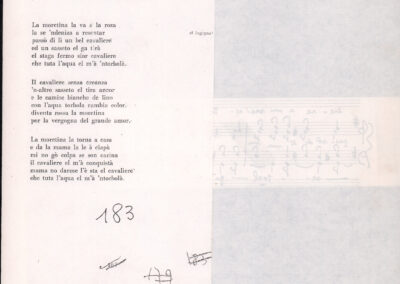 La moretina la va a la roza
la se 'nzeniza a resentar
passò di lì un bel cavaliere
ed un sasseto el ga tirà
el staga fermo sior cavaliere
che tuta l'aqua el m'à 'ntorbolà.
Il cavaliere senza creanza
'n'altro sasseto el tira ancor
e le camise bianche de lino
con l'aqua torbola cambia color.
diventa rossa la moretina
per la vergogna del grande amor.
La moretina la torna a casa
e da la mama le le à ciapà
mi no gò colpa se son carina
il cavaliere el m'à conquistà
mama no darme l'è sta el cavaliere
che tuta l'aqua el m'à 'ntorbolà.
183
179